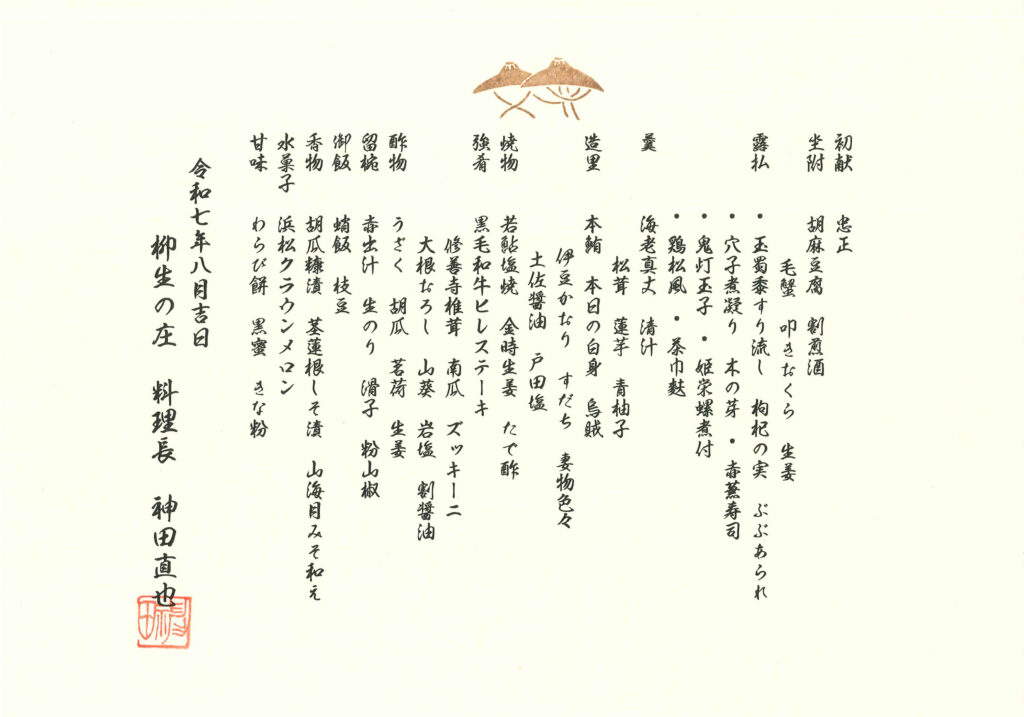 初献　忠正
坐附　胡麻豆腐　割煎酒
毛蟹　叩きおくら　生姜
露払　・玉蜀黍すり流し　枸杞の実　ぶぶあられ
・穴子煮凝り　木の芽　・赤蕪寿司
・鬼灯玉子　・姫栄螺煮付
・鶏松風　・茶巾麩
羹　海老真丈　清汁
松茸　蓮芋　青柚子
造里　本鮪　本日の白身　烏賊
伊豆かおり　すだち　妻物色々
土佐醤油　戸田塩
焼物　若鮎塩焼　金時生姜　たで酢
強肴　黒毛和牛ヒレステーキ
修善寺椎茸　南瓜　ズッキーニ
大根おろし　山葵　岩塩　割醤油
酢物　うざく　胡瓜　茗荷　生姜
留椀　赤出汁　生のり　滑子　粉山椒
御飯　蛸飯　枝豆
香物　胡瓜糠漬　茎蓮根しそ漬　山海月みそ和え
水菓子　浜松クラウンメロン
甘味　わらび餅　黒蜜　きな粉
令和七年八月吉日
柳生の庄　料理長　神田直也